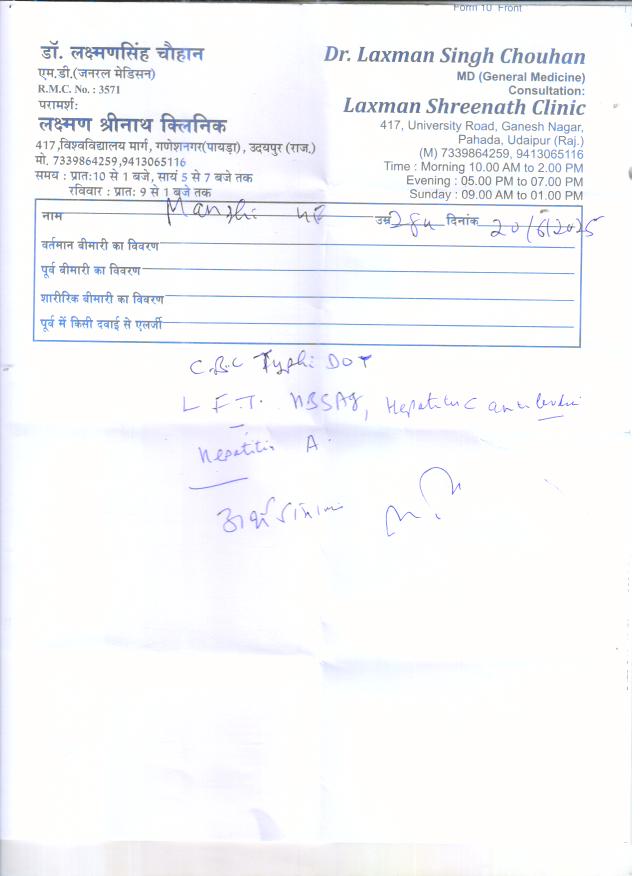 Form 10 Front
डॉ. लक्ष्मणसिंह चौहान
एम.डी.(जनरल मेडिसन)
R.M.C. No. : 3571
परामर्श:
लक्ष्मण श्रीनाथ क्लिनिक
417,विश्वविद्यालय मार्ग, गणेशनगर(पायड़ा) , उदयपुर (राज.)
मो. 7339864259,9413065116
समय : प्रात:10 से 1 बजे, सायं 5 से 7 बजे तक
रविवार : प्रात: 9 से 1 बजे तक
Dr. Laxman Singh Chouhan
MD (General Medicine)
Consultation:
Laxman Shreenath Clinic
417, University Road, Ganesh Nagar,
Pahada, Udaipur (Raj.)
(M) 7339864259, 9413065116
Time : Morning 10.00 AM to 2.00 PM
Evening : 05.00 PM to 07.00 PM
Sunday : 09.00 AM to 01.00 PM
नाम उम्र दिनांक 20/6/2025
वर्तमान बीमारी का विवरण
पूर्व बीमारी का विवरण
शारीरिक बीमारी का विवरण
पूर्व में किसी दवाई से एलर्जी
C.B.C Typhi DOT
L F.T. HBSAg, Hepatitis C
Hepatitis A